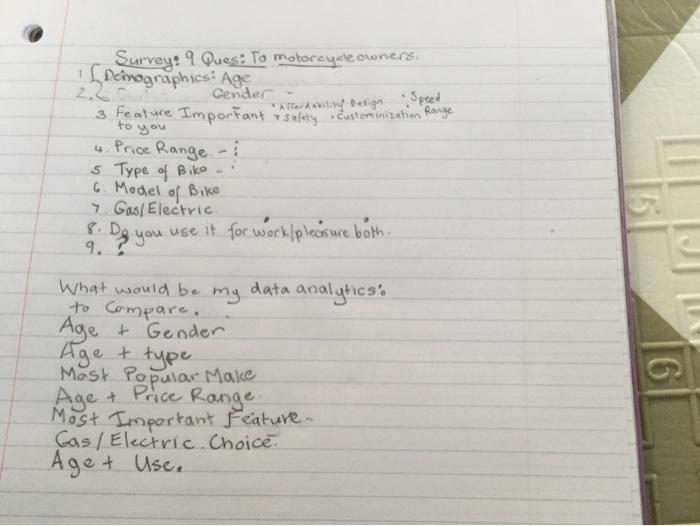 Survey: 9 Ques: To motorcycle owners.
1 Demographics: Age
2. Gender -
3 Feature Important • Affordability Design • Speed
to you • Safety • Custominization Range
4. Price Range - :
5 Type of Bike -
6. Model of Bike
7 Gas/Electric.
8. Do you use it for work/pleasure both.
9. ?
What would be my data analytics:
to Compare.
Age + Gender
Age + type
Most Popular Make
Age + Price Range.
Most Important Feature -
Gas / Electric Choice.
Age + Use.
5
6